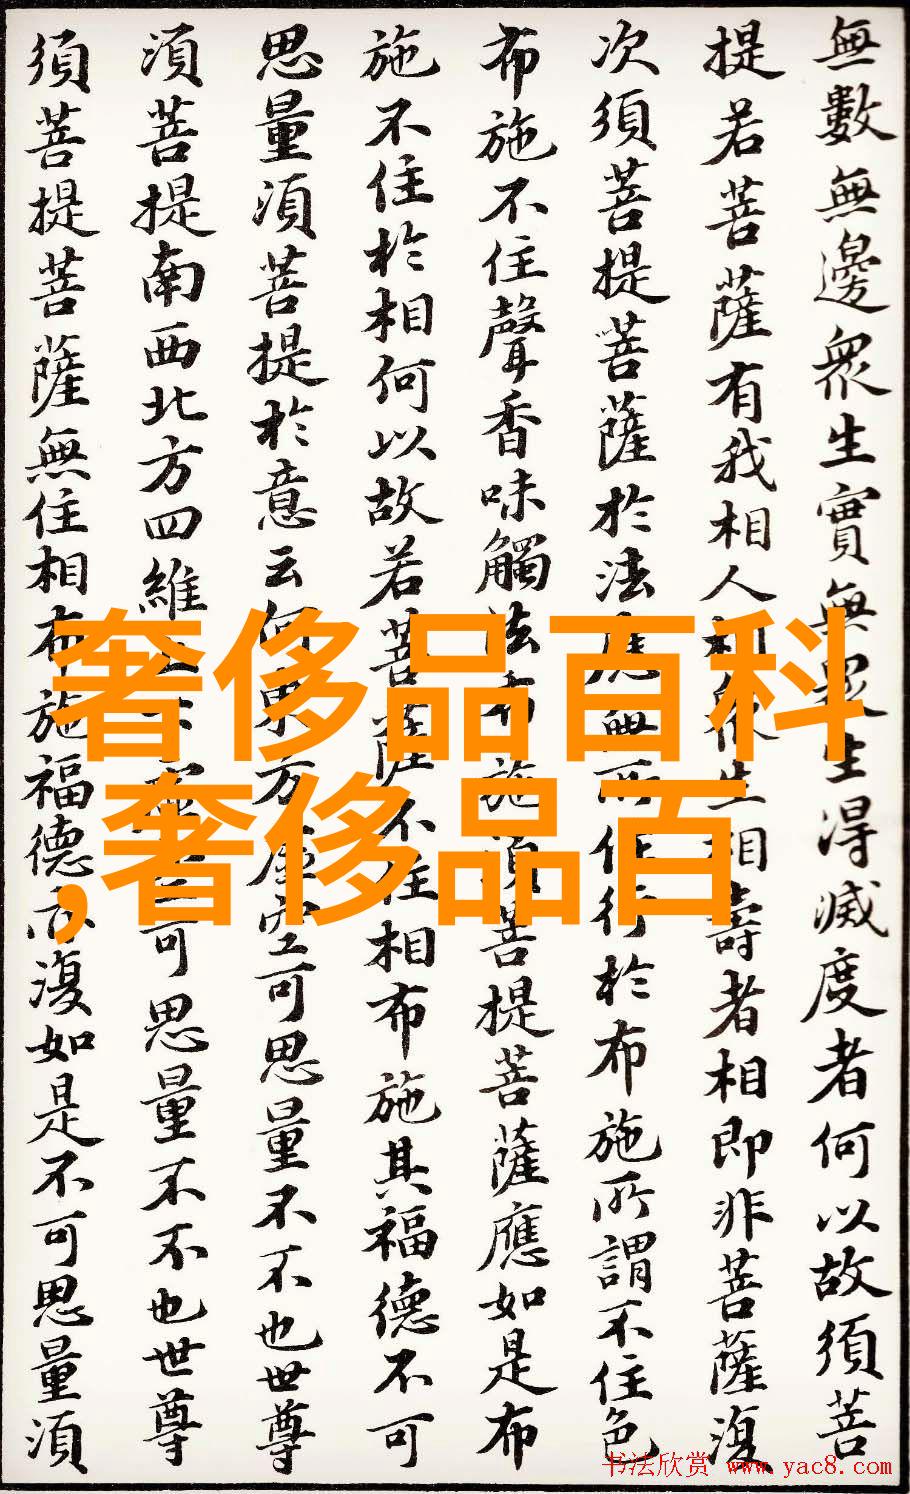 無數無邊衆生實無眾生得滅度者何以故須菩
提若菩薩有我相人相衆生相壽者相即非菩薩復
次須菩提菩薩於法應無所住行於布施所謂不住色
布施不住聲香味觸法布施須菩提菩薩應如是布
施不住於相何以故若菩薩不住相布施其福德不可
思量須菩提於意云何東方虛空可思量不不也世尊
須菩提南西北方四維上下虛空可思量不不也世尊
須菩提菩薩無住相布施福德亦復如是不可思量須
奢侈品百科
,奢侈品百
书法欣赏 www.yac8.com